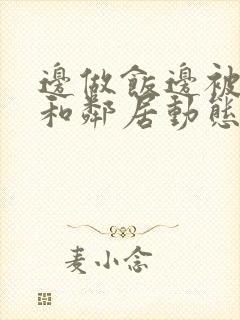 邊做飯邊被
和鄰居動態
麦小念